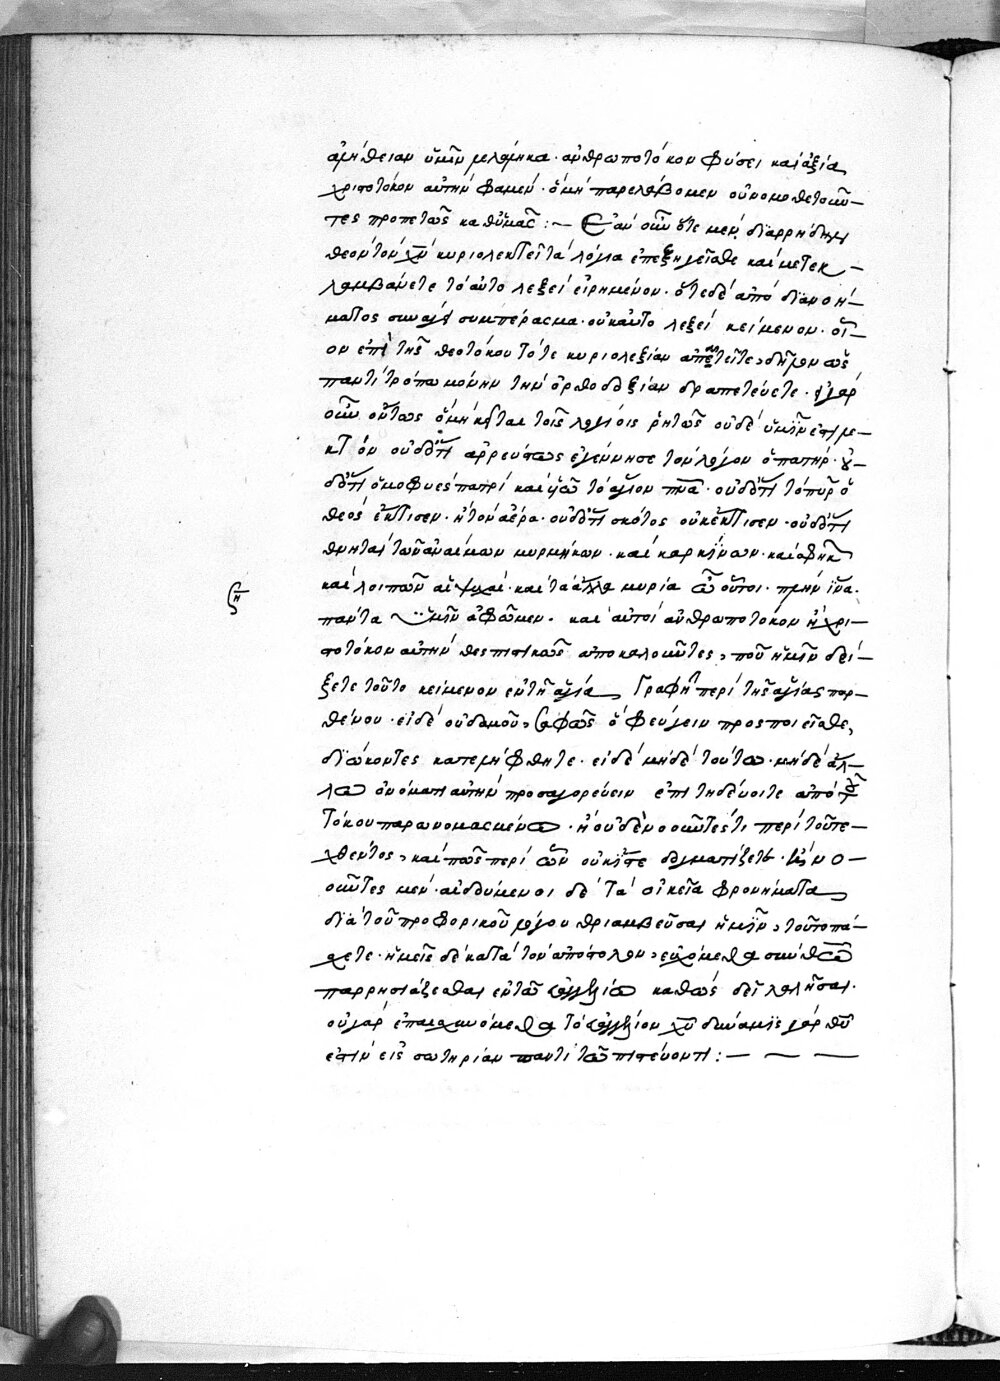 ἀλήθειαν ὑμῖν μελομένα· ἀνθρωποτόκον φύσει καὶ ἀξία
χριστοτόκον αὐτὴν φαμέν· ὃ μὴ παρελάβομεν οὐ νομοθετοῦν–
τες προπετῶς καθ' ὑμᾶς :– Ἐὰν οὖν ὅτε μὲν διαρρήδην
θεὸν τὸν χν κυριολεκτεῖ τὰ λόγια ἐπεξηγεῖσθε καὶ μετεκ–
λαμβάνετε τὸ αὐτολεξεὶ εἰρημένον· ὅτε δὲ ἀπὸ διανοή–
ματος συναχθὲν συμπέρασμα· οὐκ αὐτολεξεὶ κείμενον· οἷ–
ον ἐπὶ τῆς θεοτόκου τότε κυριολεξίαν ἀπαιτεῖτε, δῆλον ὡς
παντὶ τρόπω μόνην τὴν ὀρθοδοξίαν δραπετεύετε· εἰ γὰρ
οὖν οὕτως ὃ μὴ κεῖται τοῖς λογίοις ῥητῶς οὐδὲ ὑμῖν ἐπιλε–
κτόν οὐδ' ὅτι ἀρρεύστως ἐγέννησε τὸν λόγον ὁ πατήρ· οὐ–
δ' ὅτι ὁμοφυὲς πατρὶ καὶ υἱῶ τὸ ἅγιον πνα· οὐδ' ὅτι τὸ πῦρ ὁ
θεὸς ἔκτισεν· ἢ τὸν ἀέρα· οὐδ' ὅτι σκότος οὐκ ἔκτισεν· οὐδ' ὅτι
θνηταὶ τῶν ἀναίμων μυρμήκων· καὶ καρκίνων· καὶ σφηκῶν
καὶ λοιπῶν αἱ ψυχαί· καὶ τὰ ἄλλα μυρία ὦ οὗτοι· πλὴν ἵνα
πάντα ὑμῖν ἀφῶμεν· καὶ αὐτοὶ ἀνθρωποτόκον ἢ χρι–
στοτόκον αὐτὴν θεσπιστικῶς ἀποκαλοῦντες, ποῦ ἡμῖν δεί–
ξετε τοῦτο κείμενον ἐν τῆ ἁγία Γραφῆ περὶ τῆς ἁγίας παρ–
θένου· εἰ δὲ οὐδαμοῦ, σαφῶς ὃ φεύγειν προσποιεῖσθε,
διώκοντες κατελήφθητε· εἰ δὲ μηδὲ τούτω· μηδὲ ἄλ–
λω ὀνόματι αὐτὴν προσαγορεύειν ἐπιτηδεύοιτε ἀπὸ τοῦ
τόκου παρωνομασμένω· ἢ οὐδὲν νοοῦντές τι περὶ τοῦ τε–
χθέντος, καὶ πῶς περὶ ὧν οὐκ ἴστε δογματίζετε· ἢ νο–
οῦντες μὲν· αἰδούμενοι δὲ τὰ οἰκεῖα φρονήματα
διὰ τοῦ προφορικοῦ λόγου θριαμβεῦσαι ἡμῖν, τοῦτο πά–
σχετε· ἡμεῖς δὲ κατὰ τὸν ἀπόστολον, εὐχόμεθα σὺν θῶ
παρρησιάζεσθαι ἐν τῶ εὐαγγελίω καθὼς δεῖ λαλῆσαι·
οὐ γὰρ ἐπαισχυνόμεθα τὸ εὐαγγέλιον χυ δύναμις γὰρ θυ
ἐστὶν εἰς σωτηρίαν παντὶ τῶ πιστεύοντι :– — —